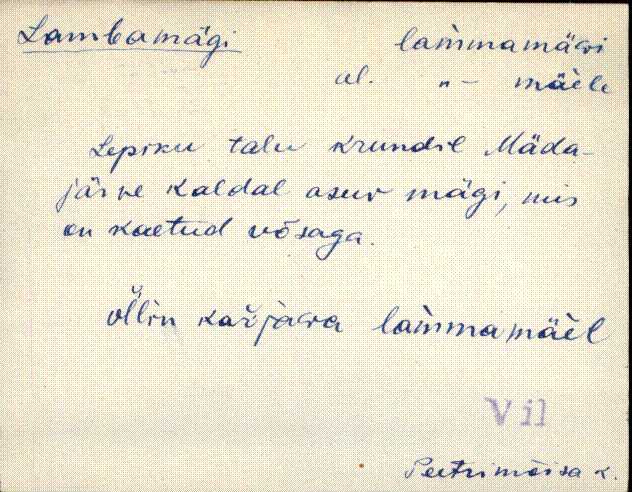 Lambamägi laìmmamäωi
al. " — mäèle
Lepiku talu krundil Mäda-
järve kaldal asuv mägi, mis
on kaetud võsaga.
ol̆lin kar̆jaωa laìmmamäèl
Vil
Peetrimõisa k.